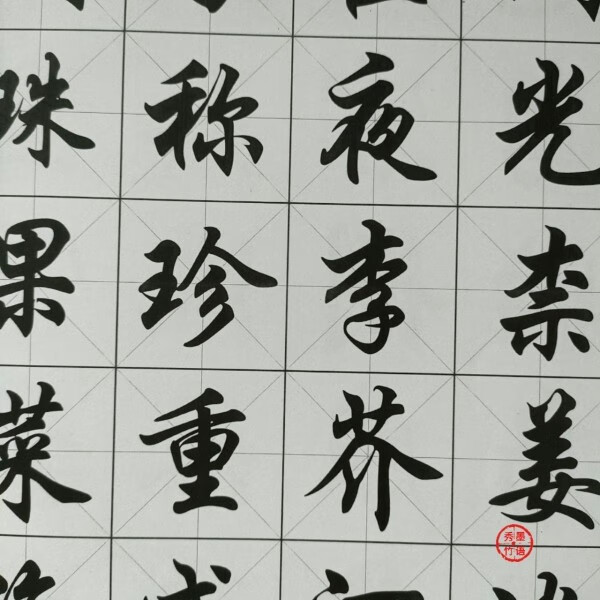 珠称夜光
果珍李柰
菜重芥姜
墨语
秀竹